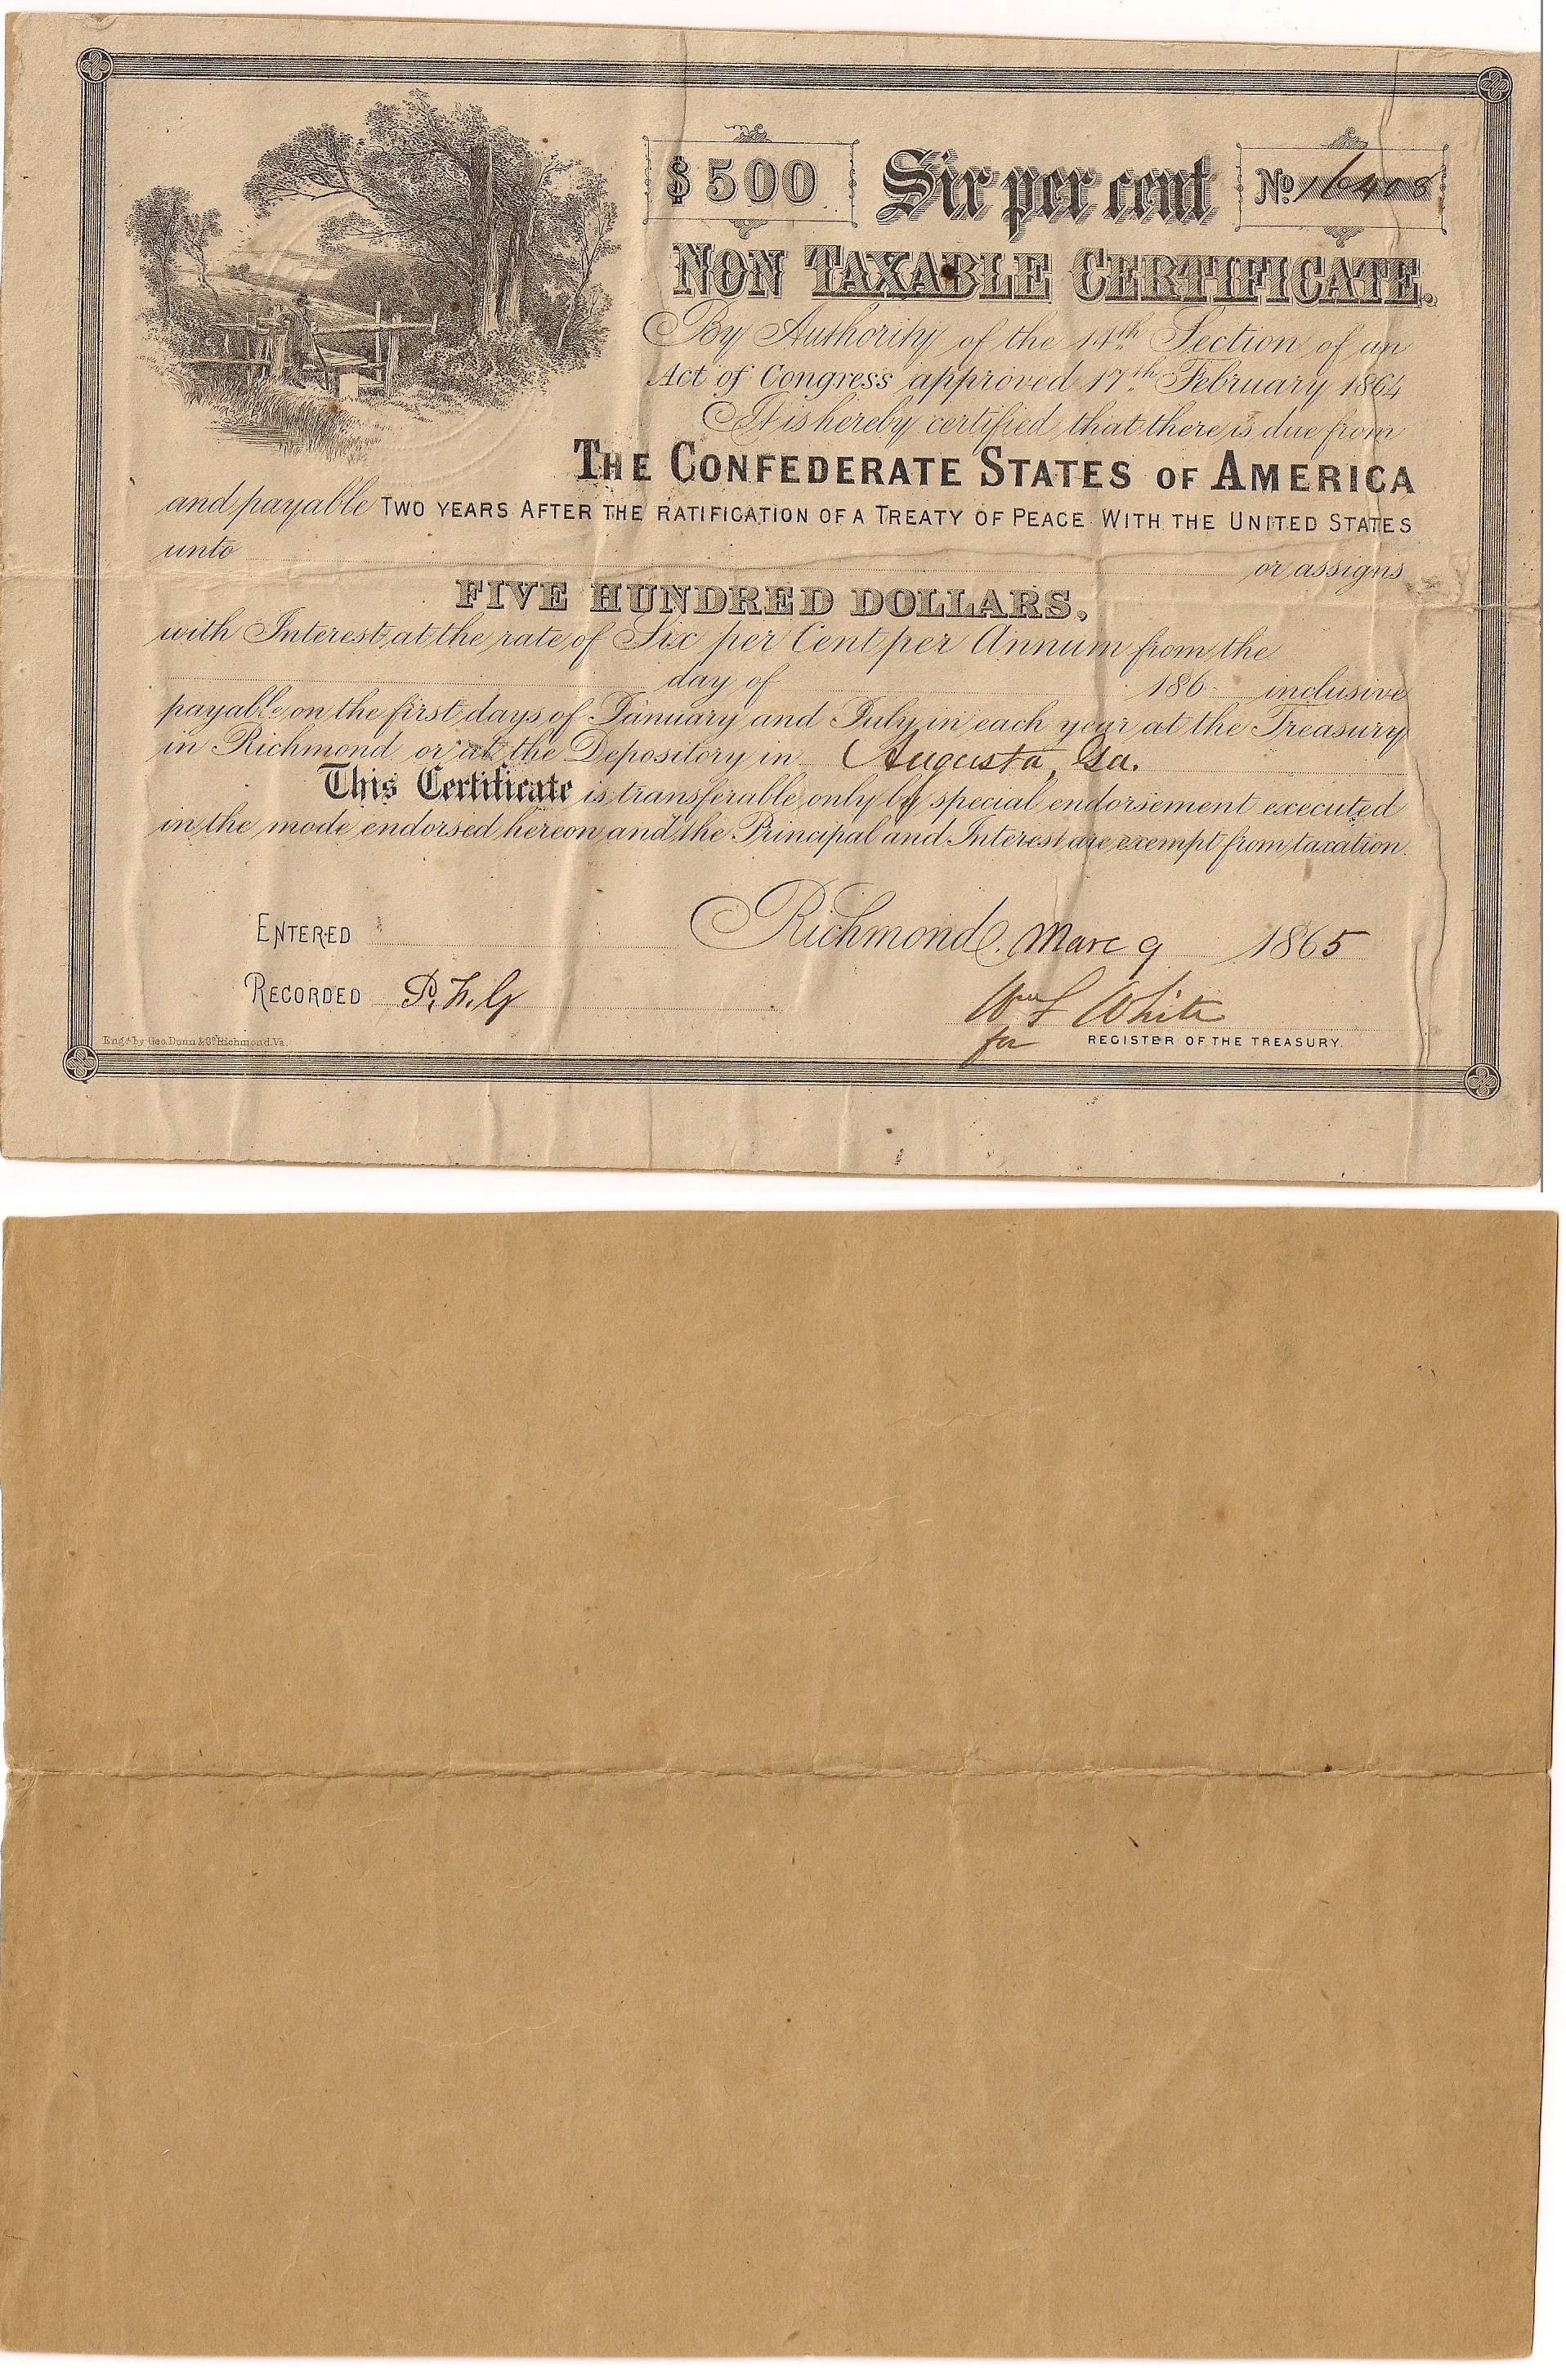 $500 Six per cent No. 16408
NON TAXABLE CERTIFICATE.
By Authority of the 14th Section of an
Act of Congress approved 17th February 1864
It is hereby certified that there is due from
THE CONFEDERATE STATES OF AMERICA
and payable TWO YEARS AFTER THE RATIFICATION OF A TREATY OF PEACE WITH THE UNITED STATES
unto or assigns
FIVE HUNDRED DOLLARS.
with Interest at the rate of Six per Cent per Annum from the
day of 186 inclusive
payable on the first days of January and July in each year at the Treasury
in Richmond or at the Depository in Augusta, Ga.
This Certificate is transferable only by special endorsement executed
in the mode endorsed hereon and the Principal and Interest are exempt from taxation.
ENTERED Richmond, Marc 9 1865
RECORDED P. F. G
Wm L White
for REGISTER OF THE TREASURY.
Engd by Geo. Dunn & Co Richmond. Va.